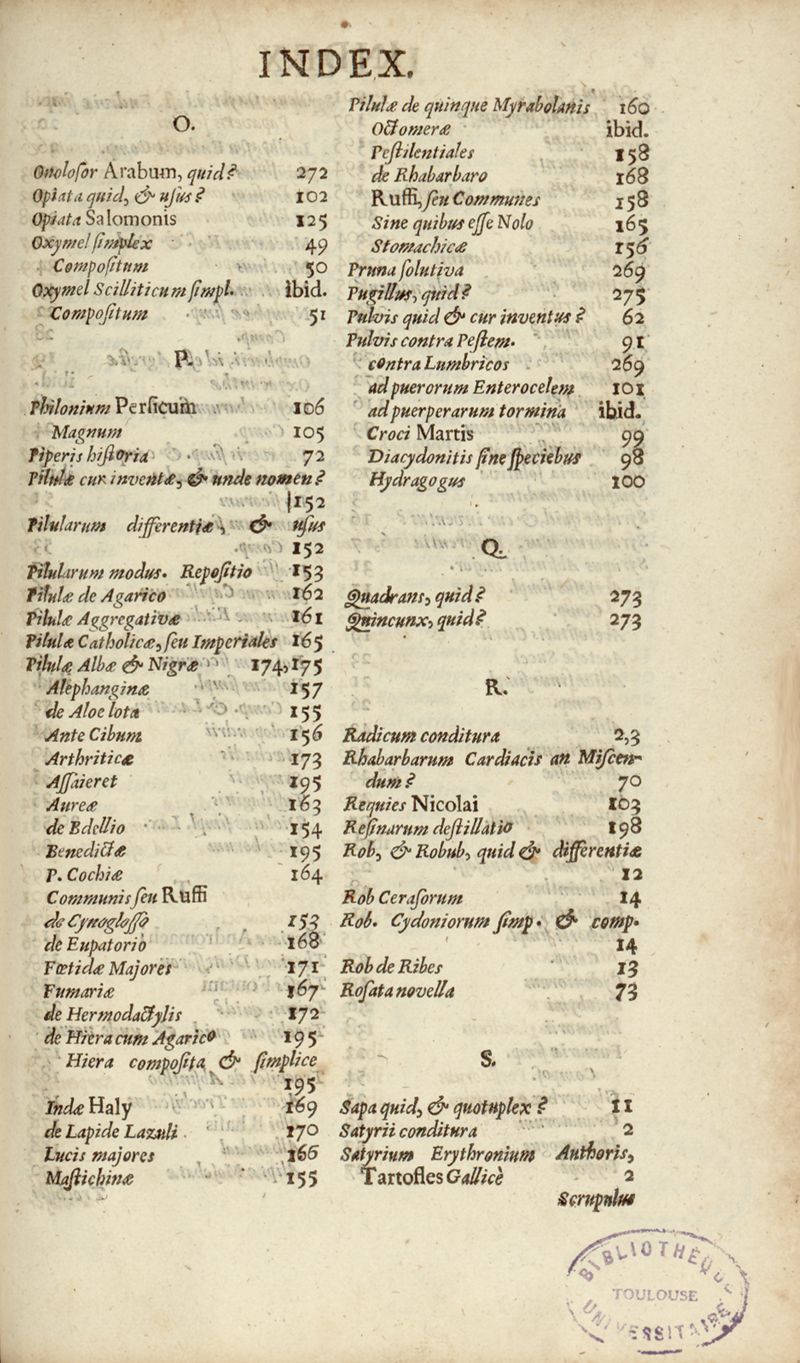 INDEX.
O.
Onolosor Arabum, quid? 272
Opiata quid, & uſus? 102
Opiata Salomonis 125
Oxymel ſimplex 49
Compoſitum 50
Oxymel Scilliticum ſimpl. ibid.
Compoſitum 51
P.
Philonium Perſicum 106
Magnum 105
Piperis hiſtoria 72
Pilulæ cur inventæ, & unde nomen?
152
Pilularum differentiæ, & uſus
152
Pilularum modus. Repoſitio 153
Pilulæ de Agarico 162
Pilulæ Aggregativæ 161
Pilulæ Catholicæ, ſeu Imperiales 165
Pilulæ Albæ & Nigræ 174,175
Alephanginæ 157
de Aloe lota 155
Ante Cibum 156
Arthriticæ 173
Aſſaieret 195
Aureæ 163
de Bdellio 154
Benedictæ 195
P. Cochiæ 164
Communis ſeu Ruffi
de Cynogloſſo 153
de Eupatorio 168
Fœtidæ Majores 171
Fumariæ 167
de Hermodactylis 172
de Hiera cum Agarico 195
Hiera compoſita & ſimplice
195
Indæ Haly 169
de Lapide Lazuli 170
Lucis majores 166
Maſtichinæ 155
Pilulæ de quinque Myrabolanis 160
Octomeræ ibid.
Peſtilentiales 158
de Rhabarbaro 168
Ruffi, ſeu Communes 158
Sine quibus eſſe Nolo 165
Stomachicæ 156
Pruna ſolutiva 269
Pugillus, quid? 275
Pulvis quid & cur inventus? 62
Pulvis contra Peſtem. 91
contra Lumbricos 269
ad puerorum Enterocelem 101
ad puerperarum tormina ibid.
Croci Martis 99
Diacydonitis ſine ſpeciebus 98
Hydragogus 100
Q.
Quadrans, quid? 273
Quincunx, quid? 273
R.
Radicum conditura 2,3
Rhabarbarum Cardiacis an Miſcen-
dum? 70
Requies Nicolai 103
Reſinarum deſtillatio 198
Rob, & Robub, quid & differentiæ
12
Rob Ceraſorum 14
Rob. Cydoniorum ſimp. & comp.
14
Rob de Ribes 13
Roſata novella 73
S.
Sapa quid, & quotuplex? 11
Satyrii conditura 2
Satyrium Erythronium Authoris,
Tartofles Gallicè 2
Scrupulus
BIBLIOTHEQUE
TOULOUSE